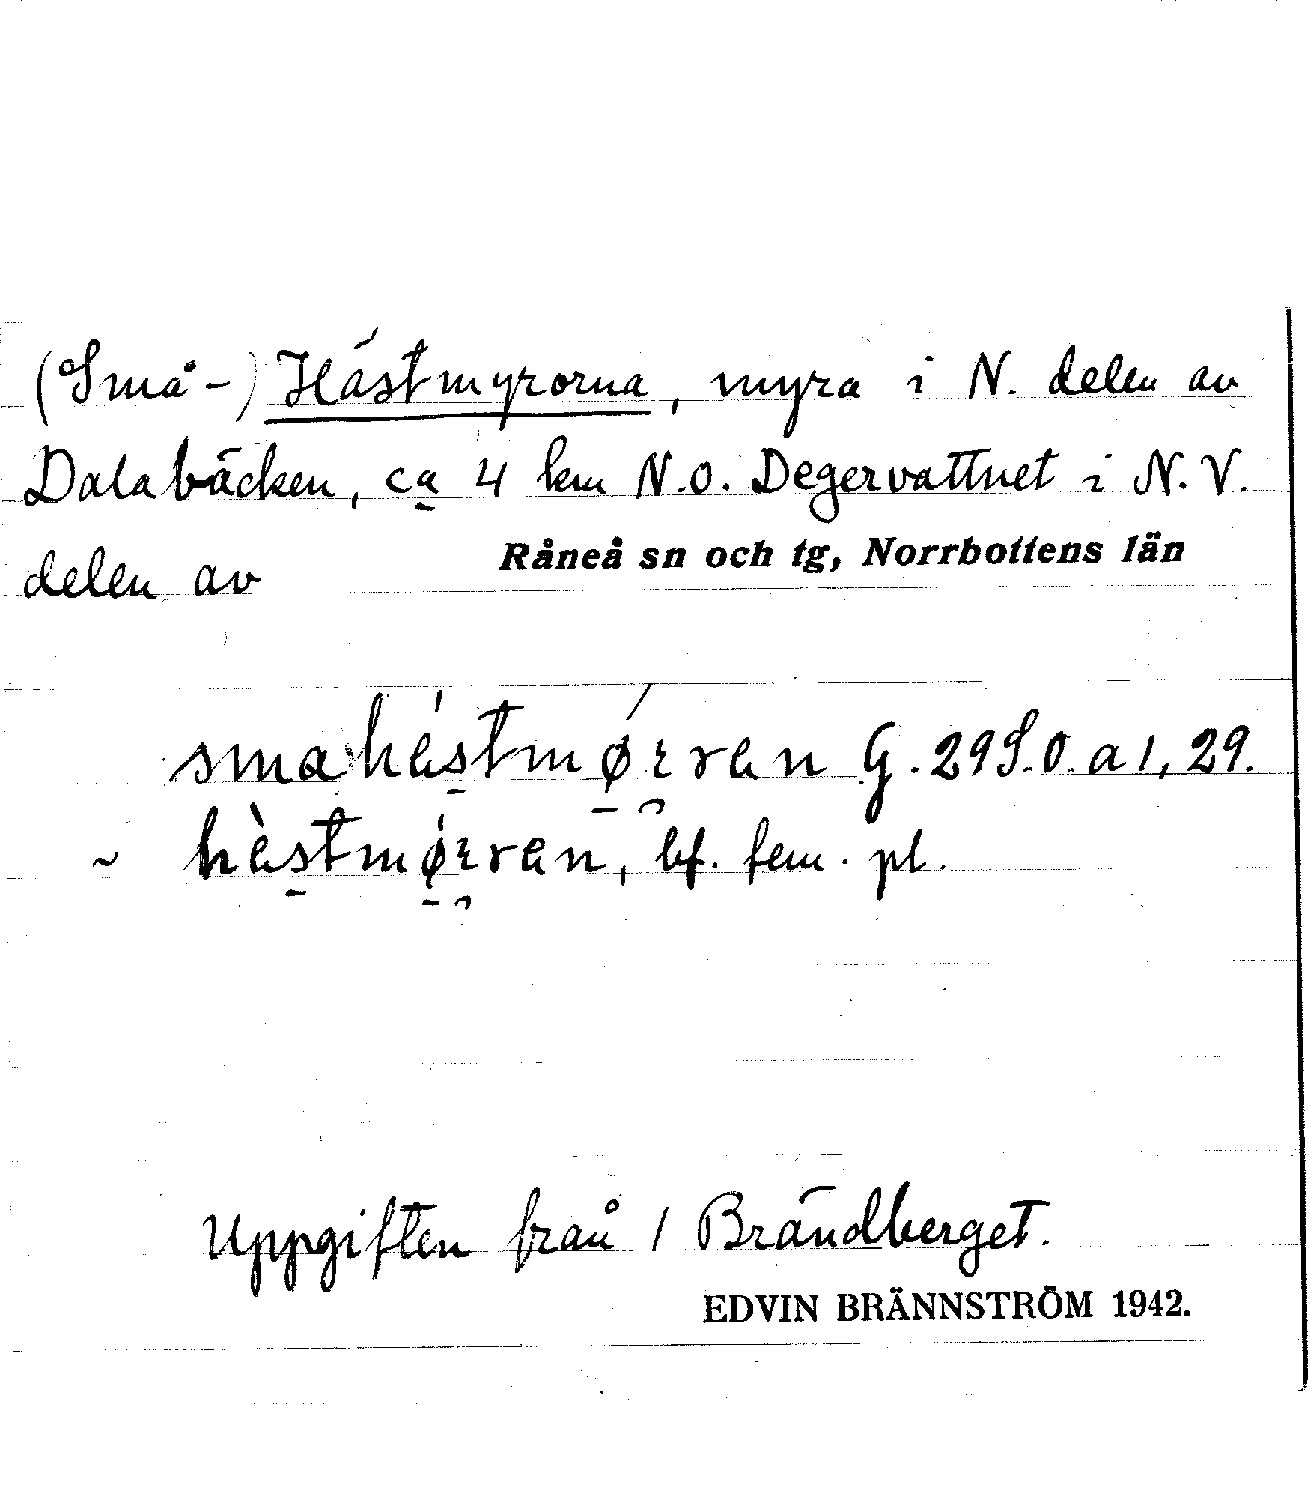 (Små-) Hästmyrorna, myra i N. delen av
Dalabäcken, ca 4 km N.O. Degervattnet i N.V.
delen av Råneå sn och tg, Norrbottens län
smahèstmøʀran G. 29 S.O. a 1, 29.
~ hèstmøʀran, bf. fem. pl.
Uppgiften från 1 Brändberget.
EDVIN BRÄNNSTRÖM 1942.